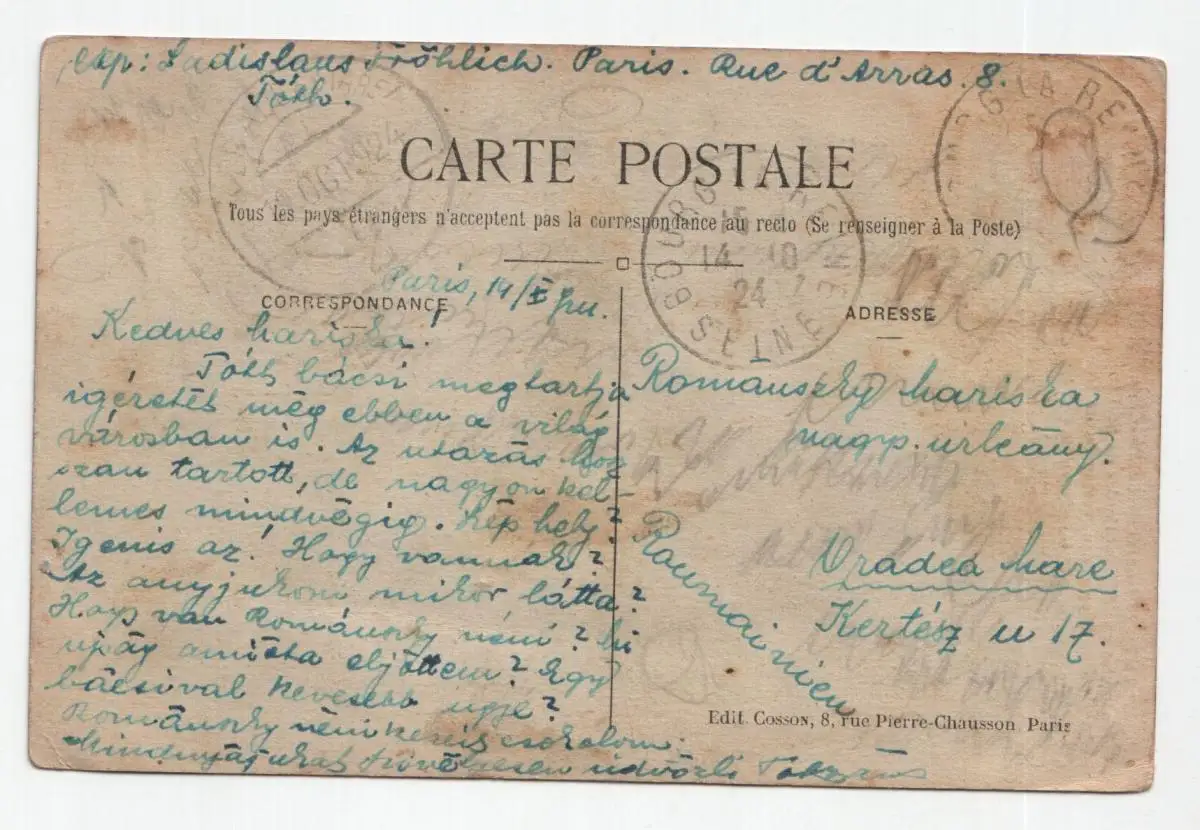 exp: Ladislaus Fröhlich. Paris. Rue d'Arras. 8.
Tóth.
CARTE POSTALE
Tous les pays étrangers n'acceptent pas la correspondance au recto (Se renseigner à la Poste)
BOURG LA REINE
SEINE
14 10
24
OCT 1924
G LA RE
CORRESPONDANCE
ADRESSE
Paris, 14/X
Kedves Mariska.
Tóth bácsi megtartja
igéretét még ebben a világ
városban is. Az utazás hosz
szan tartott, de nagyon kel-
lemes mindvégig. Szép hely?
Igenis az! Hogy vannak?
Az anyjukoni mikor látta?
Hogy van Románszky néni? Mi
ujság amióta eljöttem? Egy
bácsival kevesebb ugye?
Románszky néni kezeit csókolom.
Mindnyájukat szívélyesen üdvözli Tóth
Románszky Mariska
nags. urleány.
Oradea Mare
Kertész u 17.
Roumainien
Edit. Cosson, 8, rue Pierre-Chausson Paris